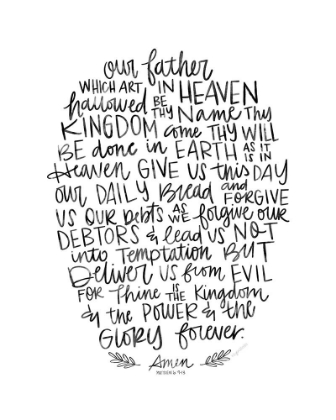 our father
WHICH ART IN HEAVEN
hallowed BE THY Name Thy
KINGDOM come THY WILL
BE done in EARTH AS IT IS IN
Heaven GIVE US this DAY
our DAILY Bread and FORGIVE
US OUR Debts AS WE forgive our
DEBTORS & lead US NOT
into Temptation BUT
Deliver US from EVIL
FOR Thine IS THE Kingdom
& the POWER & the
GLORY forever.
Amen
MATTHEW 6:9-13